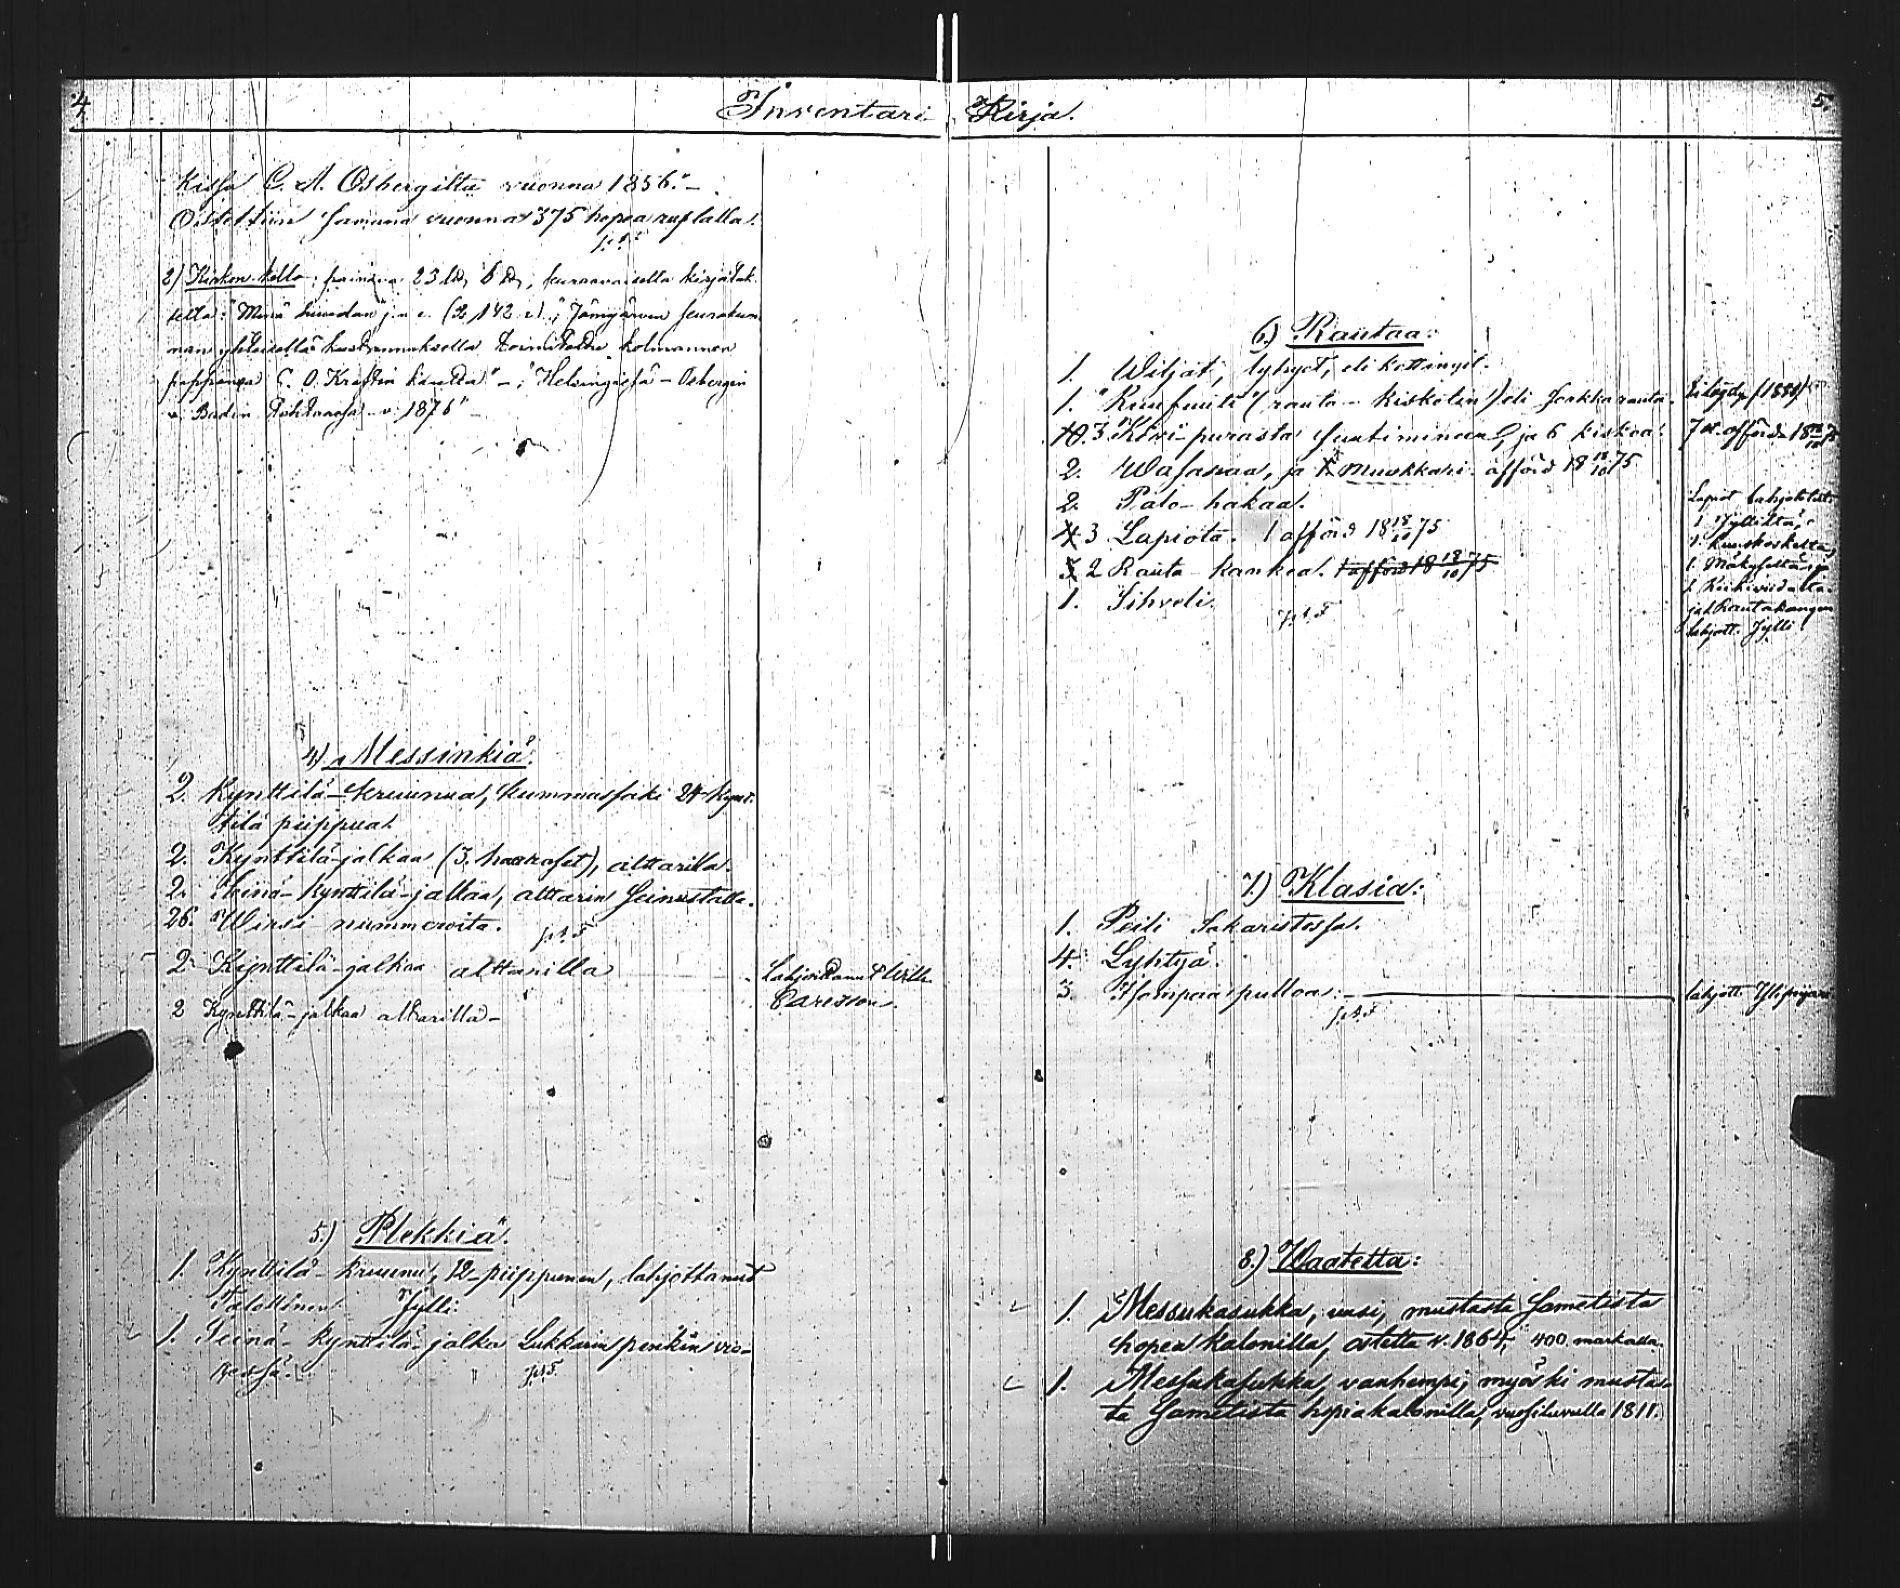 4
Inventari
kissa C. A. Osbergiltä vuonna 1856." –
Ostettiin samana vuonna 375 hopea ruplalla.
2) Kirkon kello; painava 23 lb, 6 lb, seuraavaisella kirjoituk
sella: "Minä huudan" j. n. e. (2 142 v.); "Jämijärven seurakun
nan yhteisellä kustannuksella toimitettu kolmannen
pappinsa C. O. Kraftin kautta" –; "Helsingissä – Osbergin
& Badin Tehtaassa – v. 1876" –
4) Messinkiä.
2. Kynttilä-kruunua, kummassaki 24 kynt-
tilä piippua.
2. Kynttilä-jalkaa (3. haaraset), alttarilla.
2. Seinä-kynttilä-jalkaa, alttarin seinustalla.
26. Wirsi-nummeroita.
2 Kynttilä-jalkaa alttarilla
Lahjoittanut Wilh.
Carlsson.
2 Kynttilä-jalkaa alttarilla –
5.) Plekkiä.
1. Kynttilä-kruunu, 12-piippunen, lahjottanut
Talollinen Jylli.
1. Seinä-kynttilä-jalka Lukkarin penkin vie-
ressä.
Kirja.
5.
6.) Rautaa:
1. Witjat, lyhyet, eli kettingit.
1. (rauta-kiskotin) eli sorkkarauta.
10. 3. Kivi-purasta ja 6 kiskoa.
7 st. afförd 18 18/10 75
2. Wasaraa, ja 1 muukkari. afförd 18 18/10 75
2. Palo-hakaa.
4 3 Lapiota. 1 afförd 18 18/10 75
3 2 Rauta-kankea. 1 afförd 18 18/10 75
1. Sihveli.
Lapiot lahjotelut:
1 Jylliltä,
1. Kuuskoskelta,
1. Mäkyseltä ja
1
ja 1. Rautakangen
lahjott. Jylli
7.) Klasia:
1. Peili Sakaristossa.
4. Lyhtyä.
3. Hampaa pulloa: –
lahjott.
8.) Waatetta:
1. Messukasukka, uusi, mustasta Sametista
hopea kalonilla, ostettu v. 1864, 400 markalla.
1. Messukasukka, vanhempi, myöski musta-
ta Sametista hopiakalonilla, vuosiluvulla 1811.